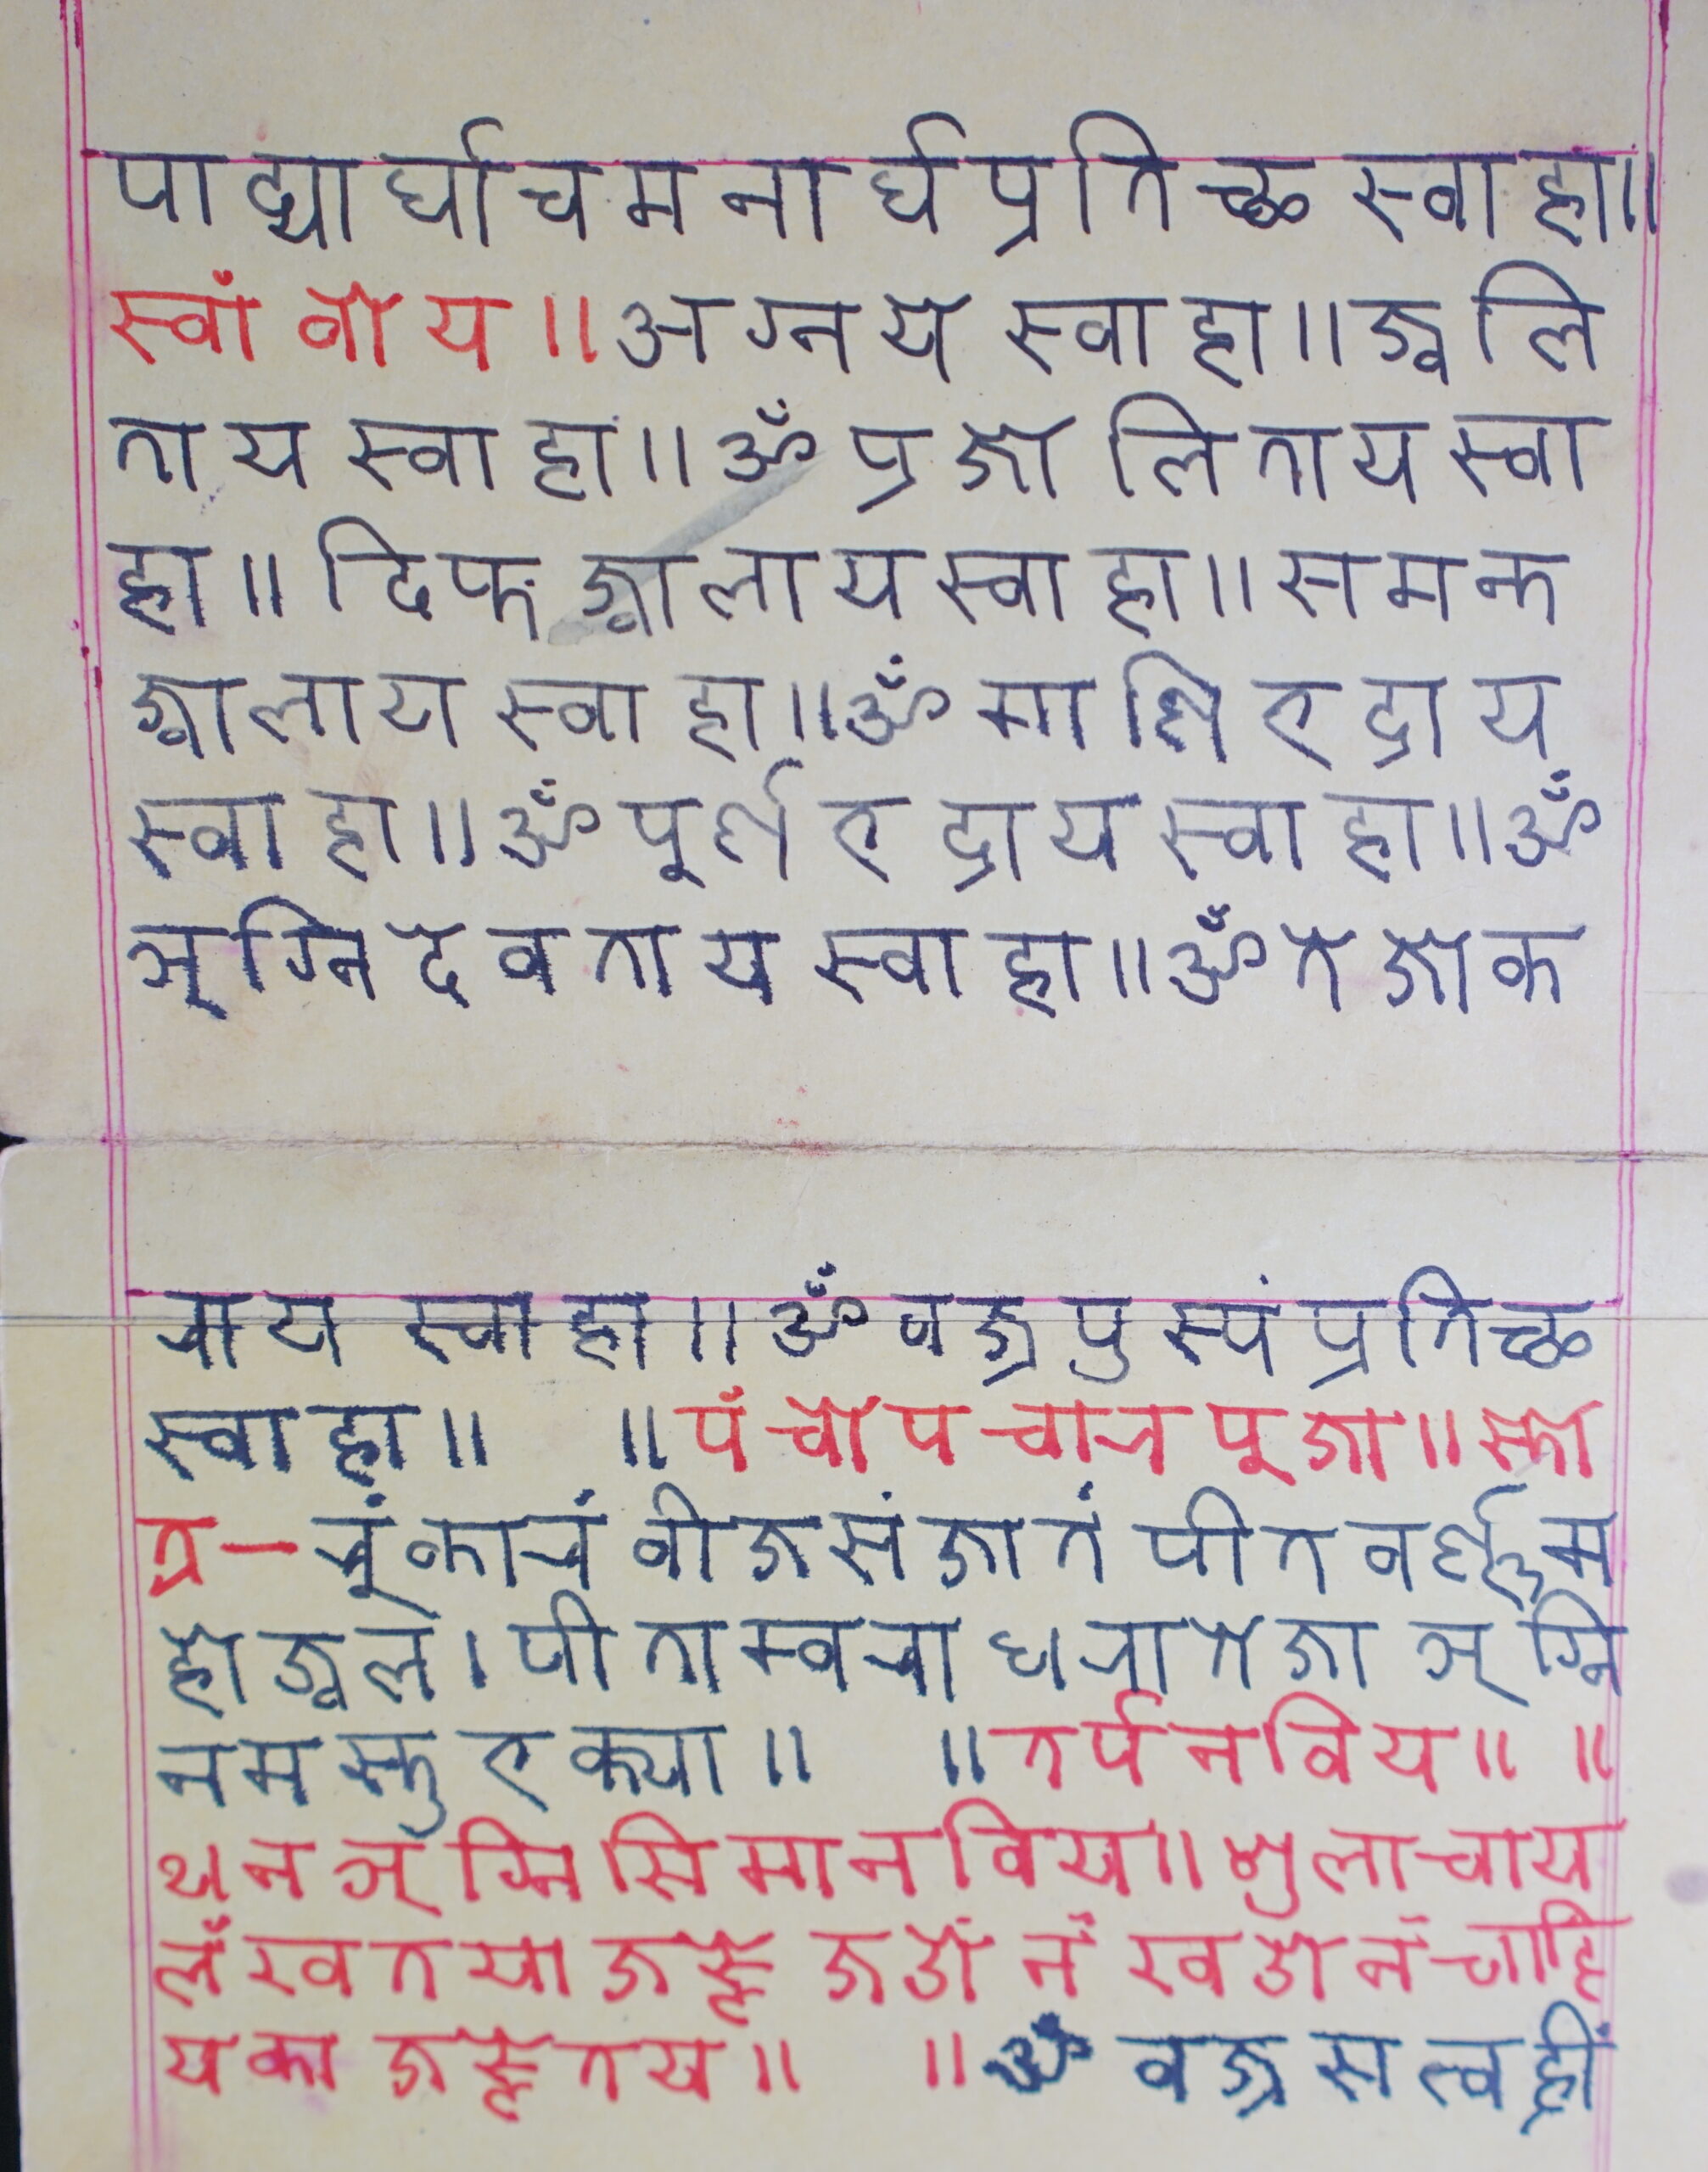 पाद्यार्घाचमनार्घप्रतिच्छ स्वाहा॥
स्वां बोय॥ अग्नये स्वाहा॥ ज्वलि
ताय स्वाहा॥ ॐ प्रजोलिताय स्वा
हा॥ दिप्त ज्वालाय स्वाहा॥ समन्त
ज्वालाय स्वाहा॥ ॐ माणि भद्राय
स्वाहा॥ ॐ पूर्ण भद्राय स्वाहा॥ ॐ
अग्नि देवताय स्वाहा॥ ॐ तेजोक
राय स्वाहा॥ ॐ वज्र पुस्पं प्रतिच्छ
स्वाहा॥ ॥ पंचोपचार पूजा॥ स्तो
त्र- रूंकारं बीज संजातं पीत वर्ण्ण म
होज्वल। पीताम्वरा धरा तेजा अग्नि
नमस्तु भक्त्या॥ ॥ तर्पन विय॥ ॥
थन अग्निसि मान विय॥ मुलाचाय
लँखतया जओनं खओनं चाहि
यका तय॥ ॥ ॐ वज्रसत्व ह्रीं